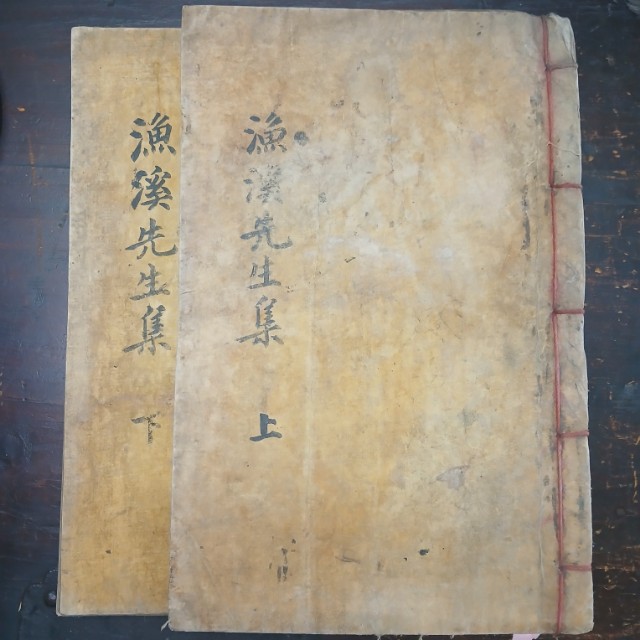 漁溪先生集 上
漁溪先生集 下